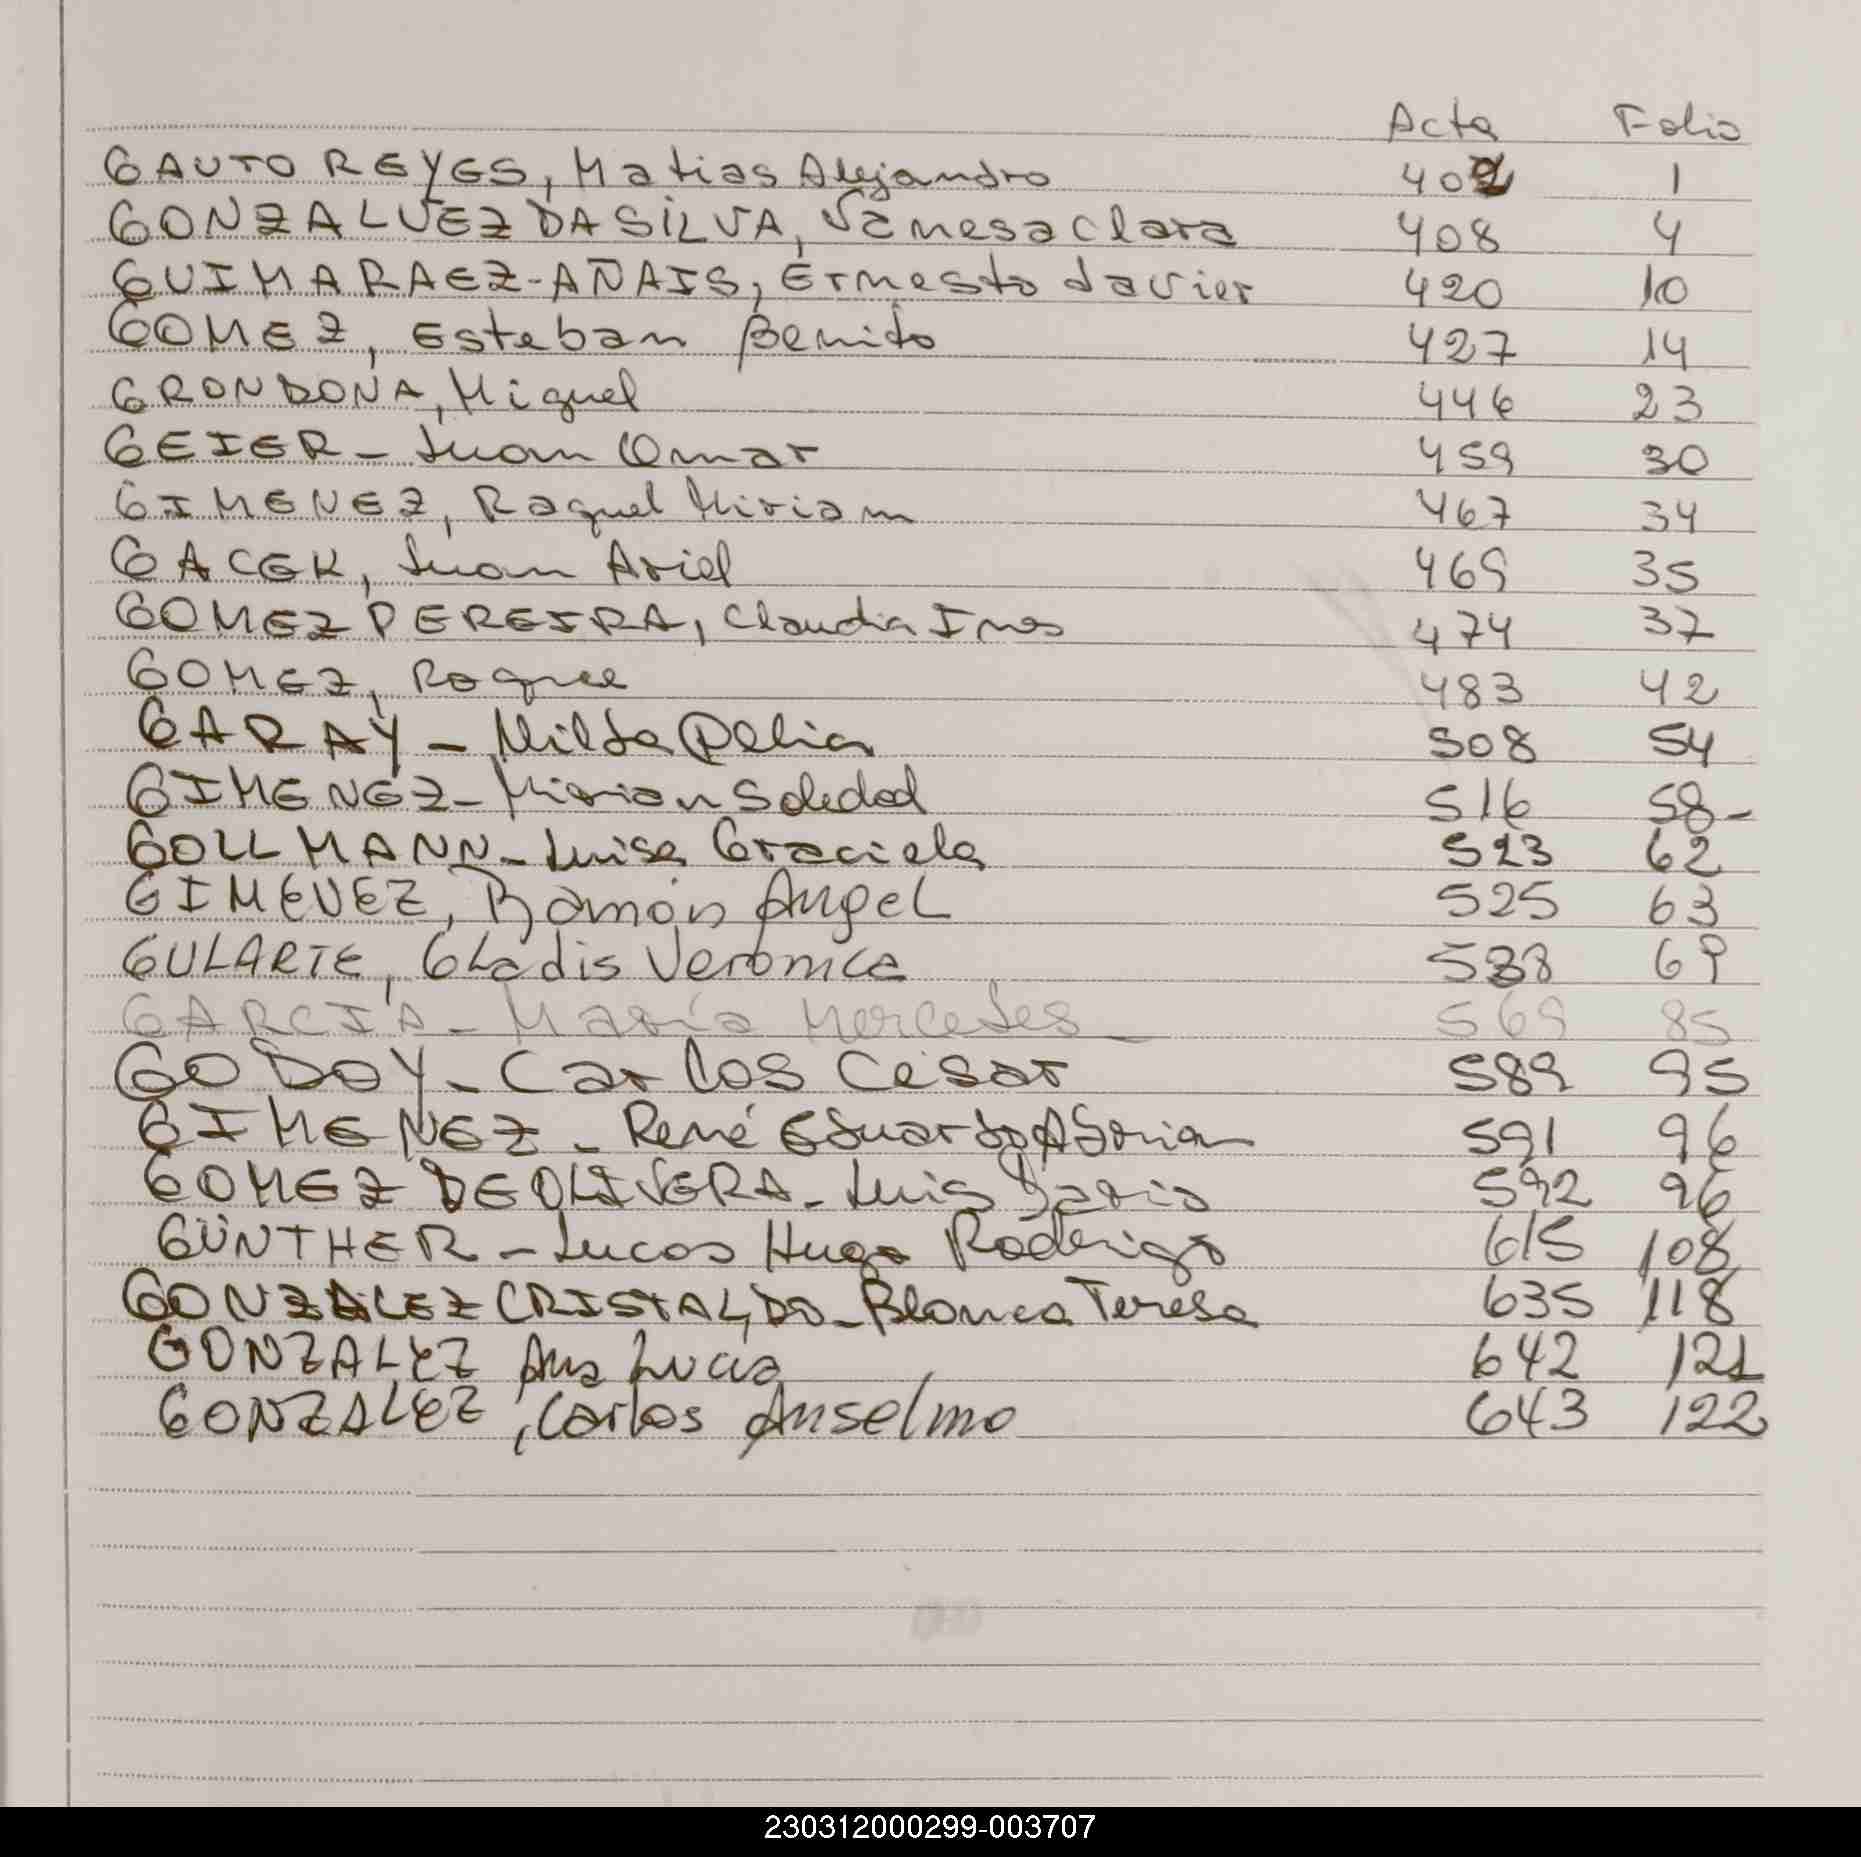 Acta Folio
GAUTO REYES, Matias Alejandro 402 1
GONZALVEZ DA SILVA, Vanesa Clara 408 4
GUIMARAEZ-AÑAIS, Ernesto Javier 420 10
GOMEZ, Esteban Benito 427 14
GRONDONA, Miguel 446 23
GEIER - Juan Omar 459 30
GIMENEZ, Raquel Miriam 467 34
GACEK, Juan Ariel 469 35
GOMEZ PEREIRA, Claudia Ines 474 37
GOMEZ, Roque 483 42
GARAY - Nilda Delia 508 54
GIMENEZ - Mirian Soledad 516 58-
GOLLMANN - Luisa Graciela 523 62
GIMENEZ, Ramón Angel 525 63
GULARTE, Gladis Verónica 538 69
GARCIA - María Mercedes - 569 85
GODOY - Carlos César 589 95
GIMENEZ - René Eduardo Adrian 591 96
GOMEZ DE OLIVERA - Luis Dario 592 96
GÜNTHER - Lucas Hugo Rodrigo 615 108
GONZALEZ CRISTALDO - Blanca Teresa 635 118
GONZALEZ Ana Lucia 642 121
GONZALEZ, Carlos Anselmo 643 122
230312000299-003707